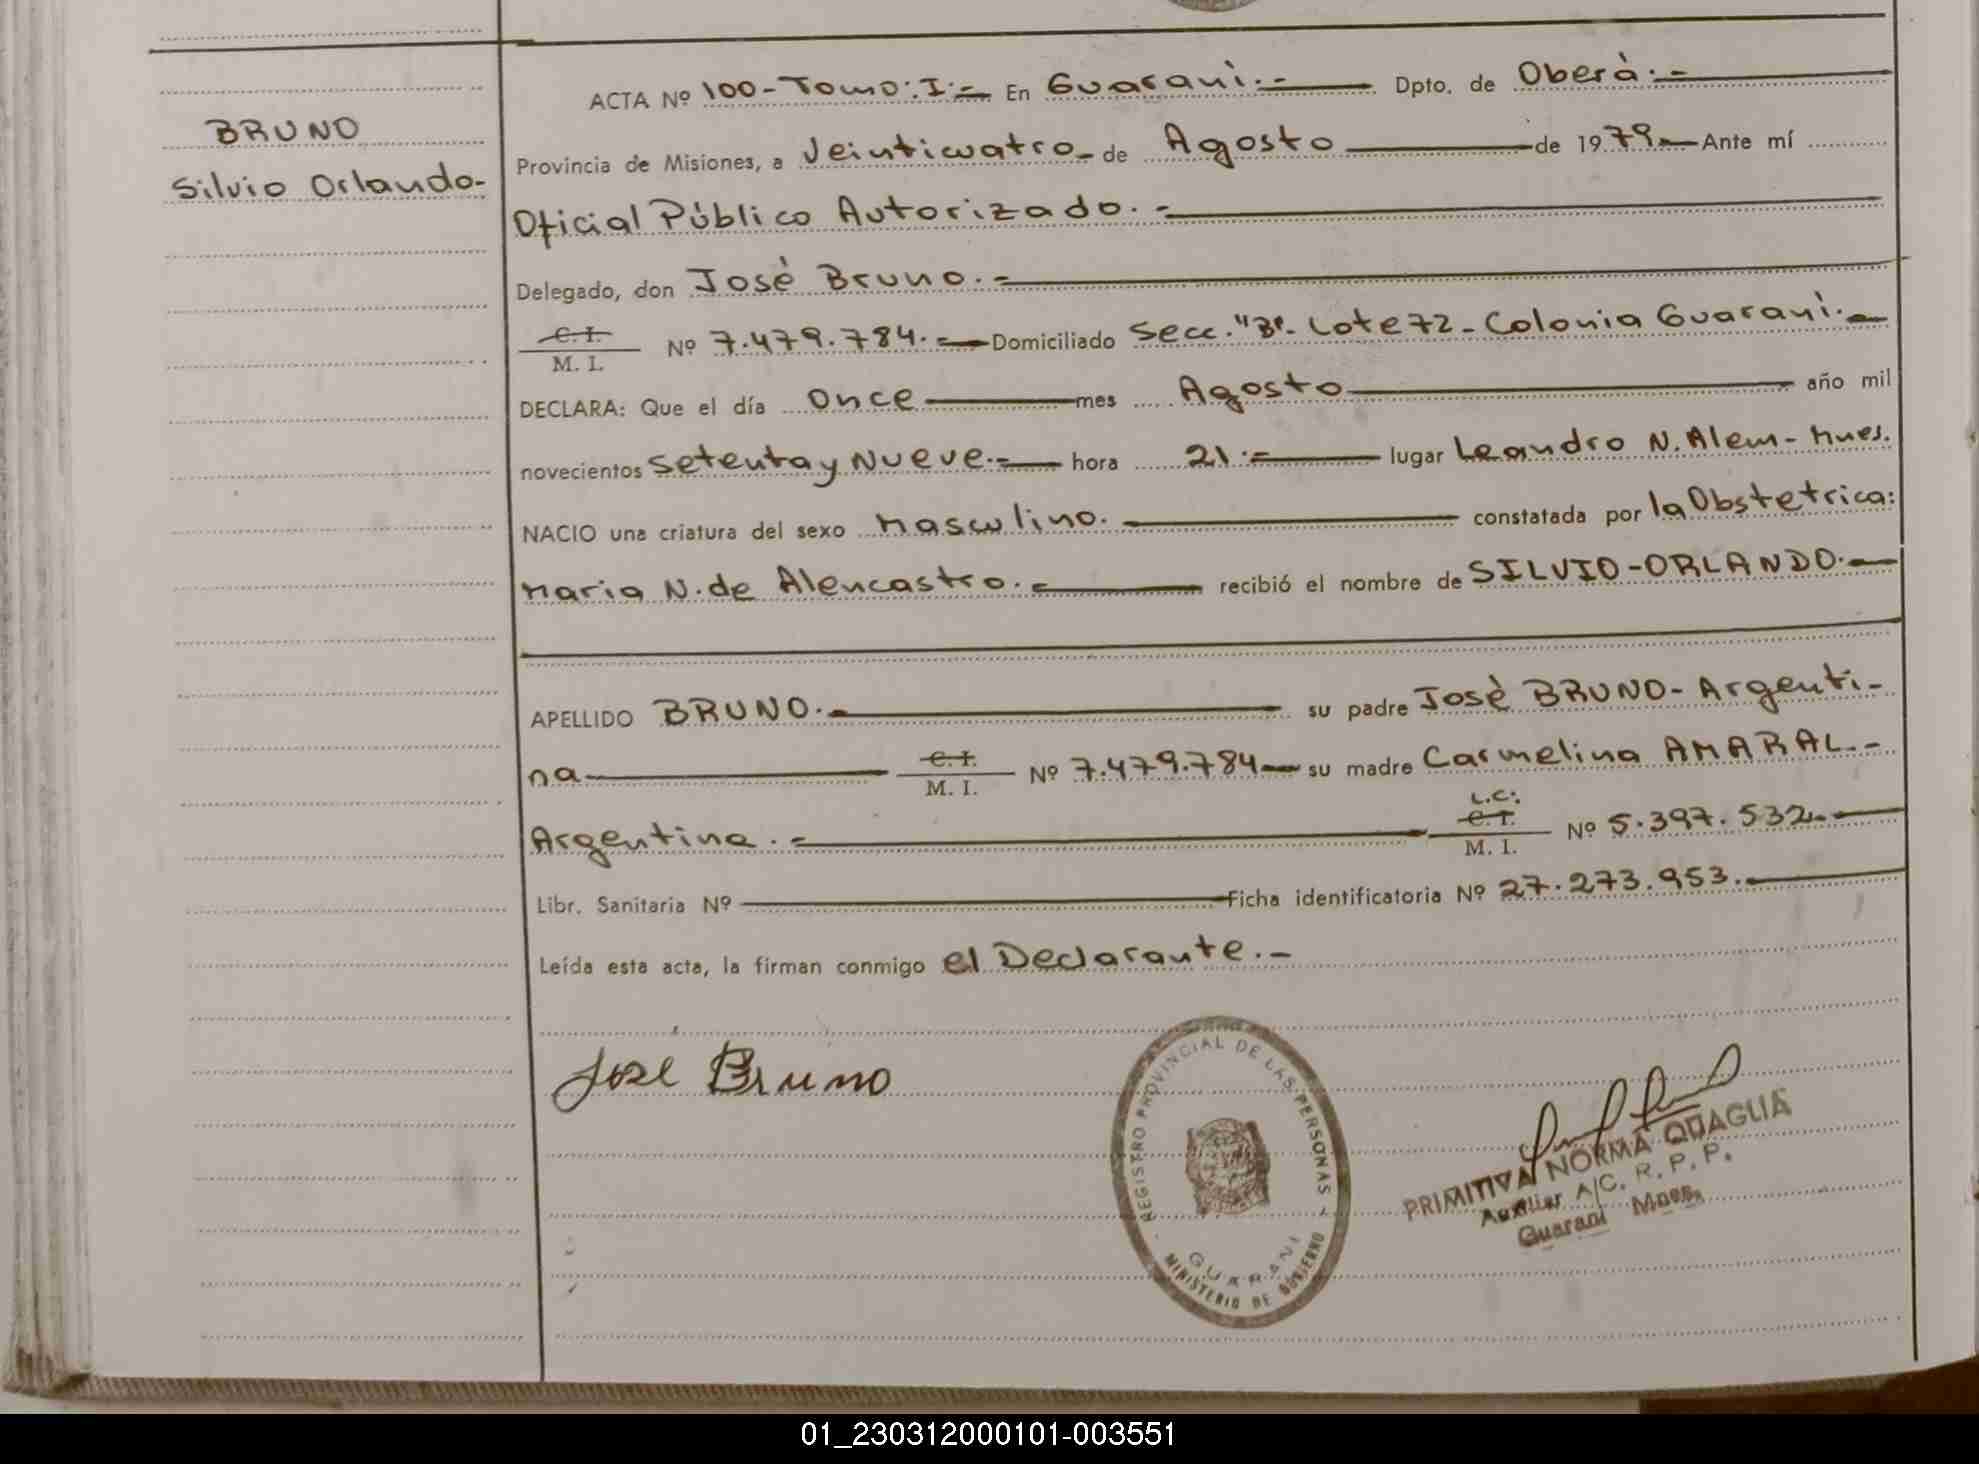 BRUNO
Silvio Orlando-
ACTA Nº 100-Tomo:I:- En Guaraní.- Dpto. de Oberá.-
Provincia de Misiones, a Veinticuatro- de Agosto de 1979.- Ante mí
Oficial Público Autorizado.-
Delegado, don José Bruno.-
C. I.
M. I.
Nº 7.479.784.- Domiciliado Secc. "B"- Lote 72- Colonia Guaraní.-
DECLARA: Que el día Once mes Agosto año mil
novecientos Setenta y Nueve.- hora 21.- lugar Leandro N. Alem- Mnes.
NACIO una criatura del sexo Masculino. constatada por la Obstetrica:
Maria N. de Alencastro.- recibió el nombre de SILVIO-ORLANDO.-
APELLIDO BRUNO.- su padre José BRUNO- Argenti-
na C. I. M. I. Nº 7.479.784- su madre Carmelina AMARAL.-
L.C:
Argentina.- C. I. M. I. Nº 5.397.532.-
Libr. Sanitaria Nº Ficha identificatoria Nº 27.273.953.
Leída esta acta, la firman conmigo el Declarante.-
José Bruno
REGISTRO PROVINCIAL DE LAS PERSONAS
GUARANI
MINISTERIO DE GOBIERNO
PRIMITIVA NORMA QUAGLIA
Auxiliar A/C. R. P. P.
Guaraní Mnes.
01_230312000101-003551